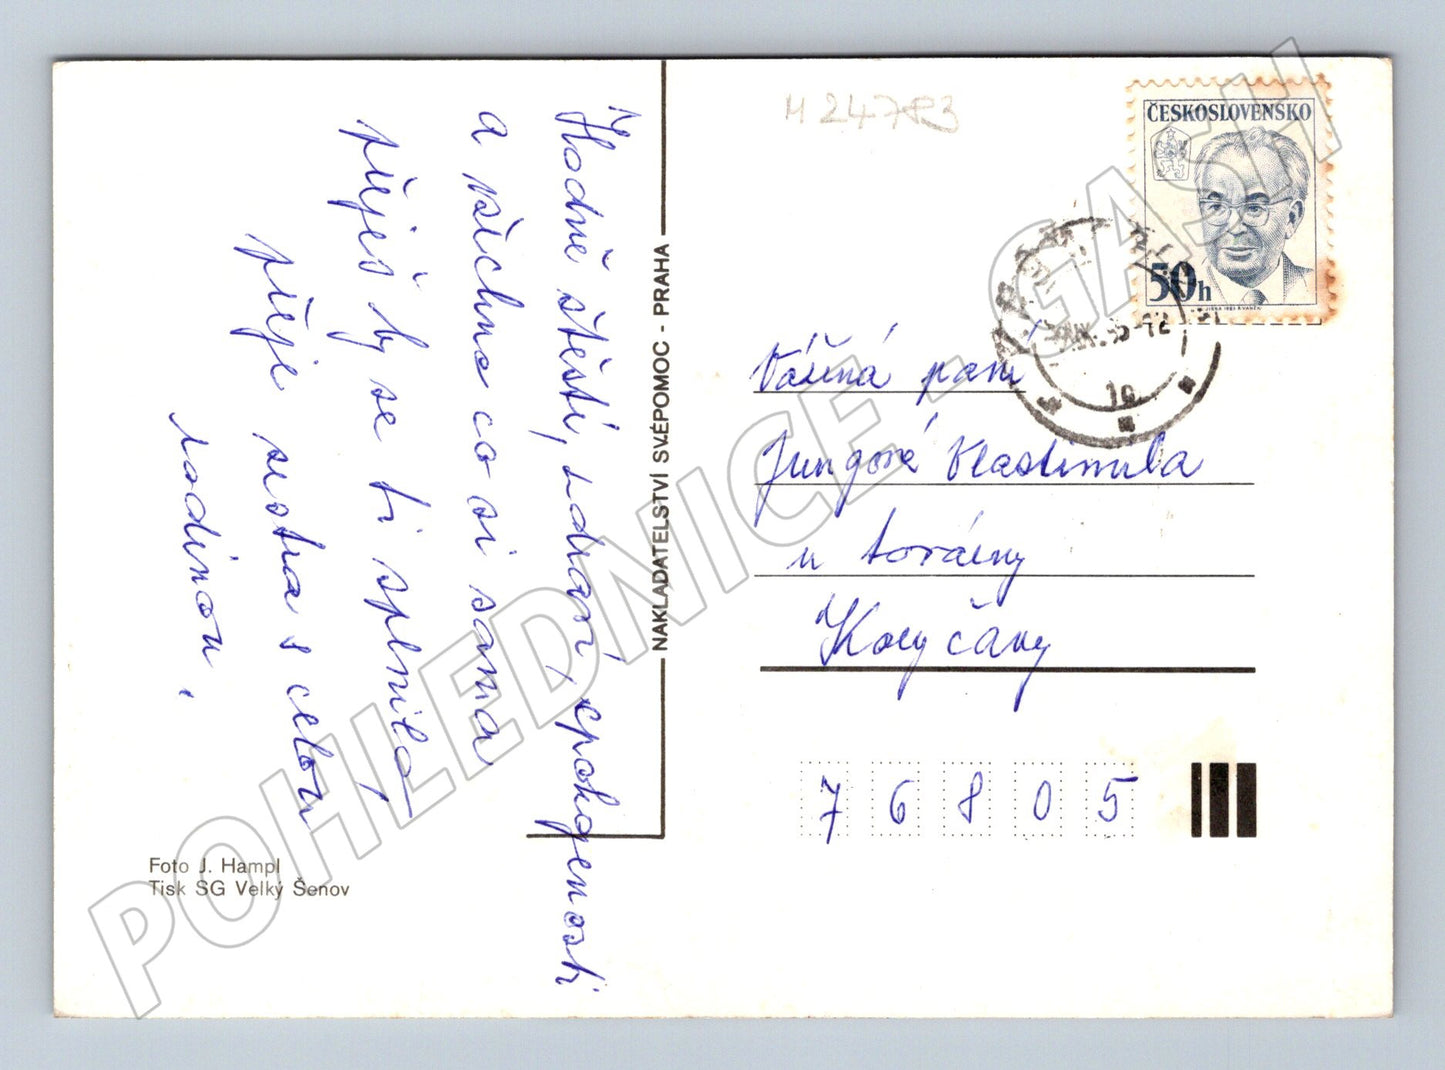 Hodně štěstí, zdraví, spokojenosti
a všechno co si sama
přeješ by se ti splnilo
přeje sestra s celou
rodinou.
Foto J. Hampl
Tisk SG Velký Šenov
NAKLADATELSTVÍ SVÉPOMOC - PRAHA
M 24783
ČESKOSLOVENSKO
50h
10
Vážená paní
Jungová Vlastimila
u továrny
Koryčany
76805
POHLEDNICE - GASH